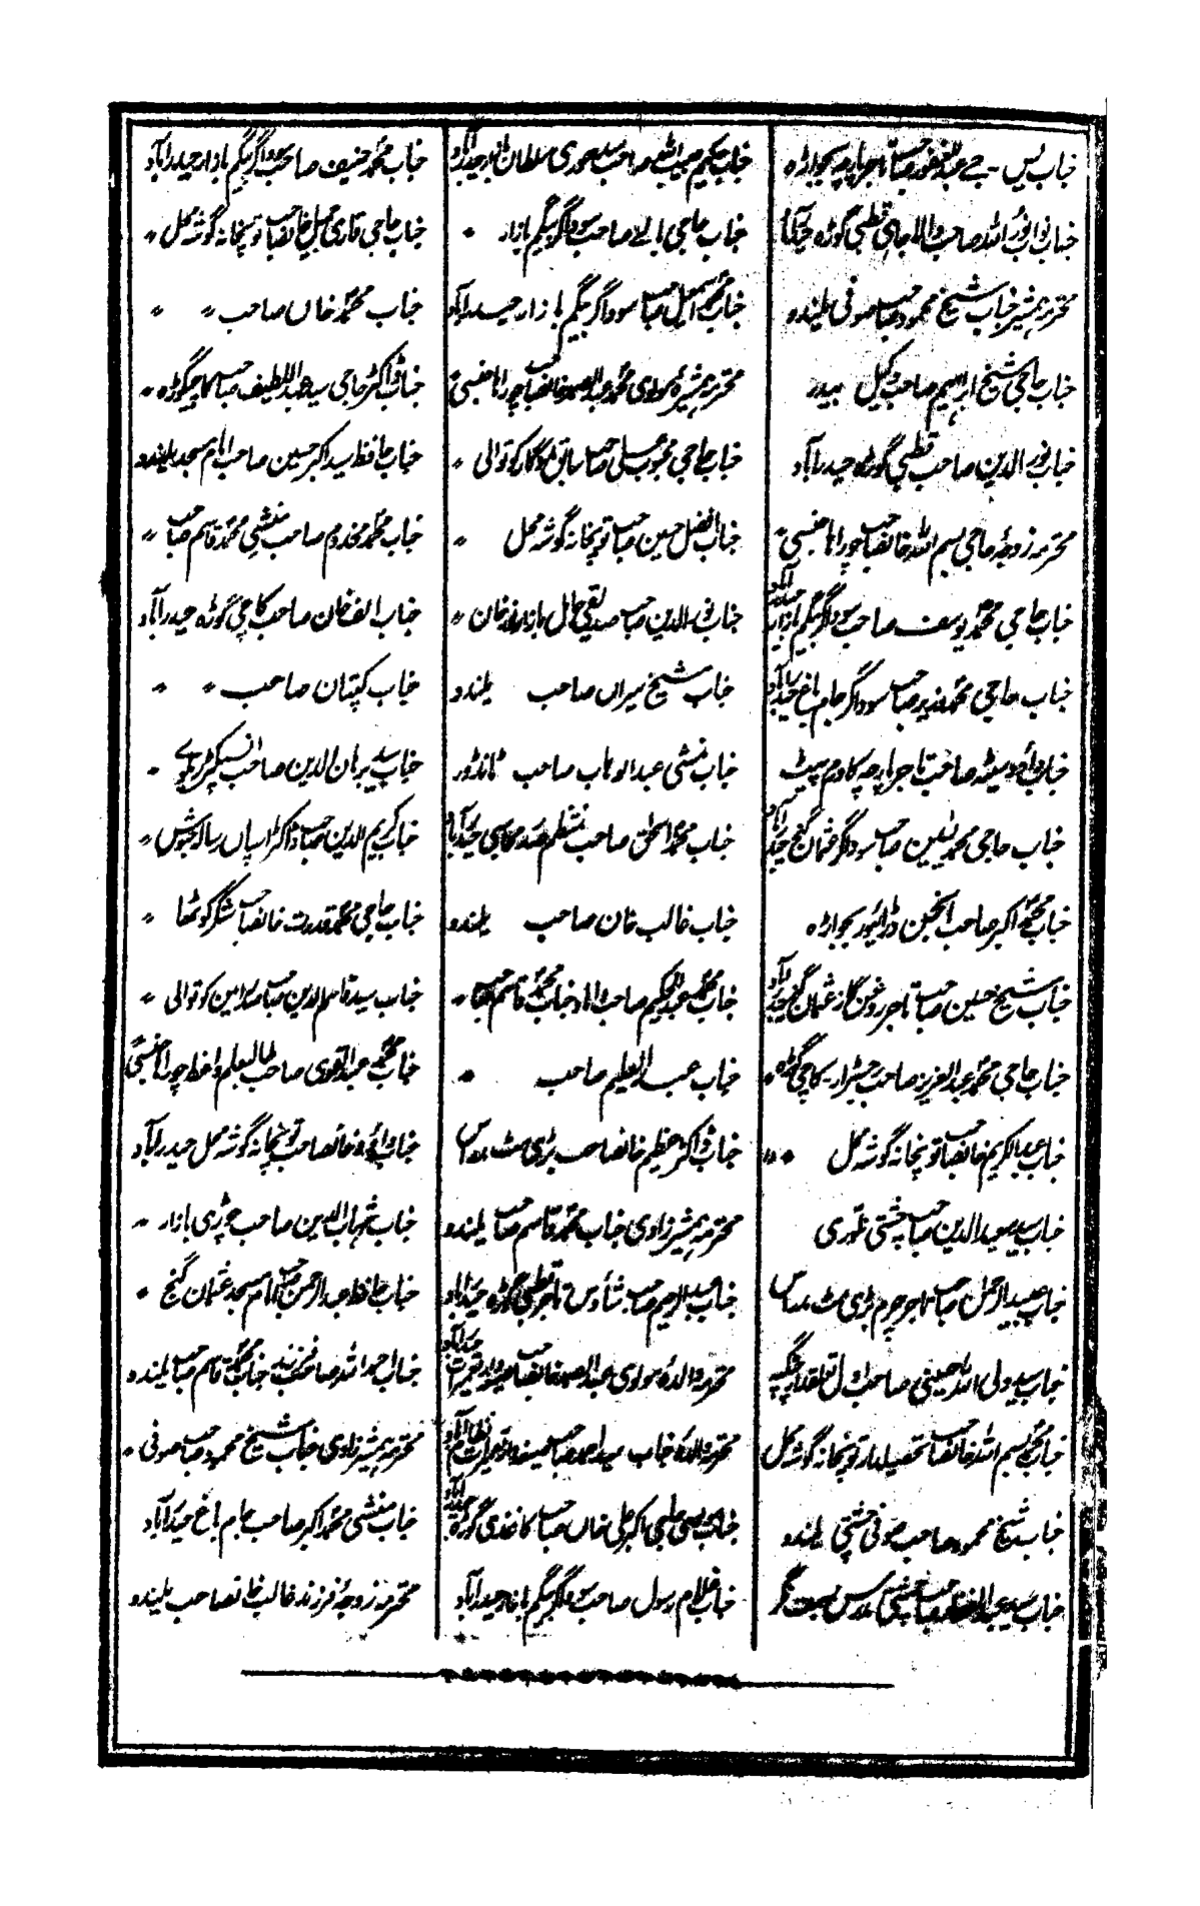 جناب یس - جے عبدالغفور صاحب تاجر پارچہ بجواڑہ
جناب نور اللہ صاحب والا جاہی قطبی گوڑہ
محترمہ ہمشیر جناب شیخ محمود صاحب صوفی یلندو
جناب حاجی شیخ ابراہیم صاحب وکیل بیدر
جناب نور الدین صاحب قطبی گوڑہ حیدرآباد
محترمہ زوجۂ حاجی بسم اللہ خانصاحب چوراہا جنسی
جناب حاجی محمد یوسف صاحب سوداگر بیگم بازار حیدرآباد
جناب حاجی محمد نذیر صاحب سوداگر جام باغ حیدرآباد
جناب داؤد سیٹھ صاحب تاجر پارچہ کادم پیٹ
جناب حاجی محمد یٰسین صاحب سوداگر عثمان گنج حیدرآباد
جناب محمد اکبر صاحب انجن ڈرائیور بجواڑہ
جناب شیخ حسین صاحب تاجر روغن گاز عثمان گنج حیدرآباد
جناب حاجی محمد عبدالعزیز صاحب کاچی گوڑہ
جناب عبدالکریم خانصاحب توپخانہ گوشہ محل 〃
جناب سید سعید الدین صاحب چشتی
جناب عبدالرحمٰن صاحب تاجر چرم بڑی مٹ مدراس
جناب سید ولی اللہ حسینی صاحب اول تعلقدار
جناب محمد بسم اللہ خانصاحب تحصیلدار توپخانہ گوشہ محل
جناب شیخ محمود صاحب صوفی چشتی یلندو
جناب سید صاحب چشتی مدراس
جناب حکیم حبیب اللہ صاحب سلطان بازار حیدرآباد
جناب حاجی صاحب سوداگر بیگم بازار 〃
جناب محمد اسمٰعیل صاحب سوداگر بیگم بازار حیدرآباد
محترمہ ہمشیرہ مولوی محمد عبدالصمد خانصاحب چوراہا جنسی
جناب حاجی محبوب علی صاحب سابق کوتوالی 〃
جناب افضل حسین صاحب توپخانہ گوشہ محل 〃
جناب نور الدین صاحب صدیقی بازار نور خان 〃
جناب شیخ میراں صاحب یلندو
جناب منشی عبدالوہاب صاحب ٹانڈور
جناب محمد اسحٰق صاحب منتظم صدر محاسبی حیدرآباد
جناب غالب خان صاحب یلندو
جناب محمد عبدالحکیم صاحب داماد جناب محمد قاسم صاحب 〃
جناب عبد العلیم صاحب 〃
جناب ڈاکٹر عظیم خانصاحب بڑی مٹ مدراس
محترمہ ہمشیر زادی جناب محمد قاسم صاحب یلندو
جناب عبدالرحیم صاحب تاجر قطبی گوڑہ حیدرآباد
محترمہ والدۂ مولوی عبدالصمد خانصاحب تعمیرات حیدرآباد
محترمہ والدۂ جناب سید احمد صاحب تعمیرات نظام آباد
جناب علی اکبر علی خاں صاحب کاغذی گوڑہ حیدرآباد
جناب غلام رسول صاحب سوداگر بیگم بازار حیدرآباد
جناب محمد حنیف صاحب سوداگر بیگم بازار حیدرآباد
جناب حاجی قاری جمیل خانصاحب توپخانہ گوشہ محل 〃
جناب محمد خاں صاحب 〃 〃
جناب ڈاکٹر حاجی سید عبداللطیف صاحب کاچیگوڑہ 〃
جناب حافظ سید اکبر حسین صاحب امام مسجد یلندو
جناب محمد مخدوم صاحب منشی محمد قاسم صاحب 〃
جناب الف خان صاحب کاچی گوڑہ حیدرآباد
جناب کپتان صاحب 〃 〃
جناب سید برہان الدین صاحب انسپکٹر ریلوے 〃
جناب کریم الدین صاحب ڈاکٹر 〃
جناب حاجی محمد قدرت خانصاحب شکر کوٹھا 〃
جناب سید قاسم الدین صاحب صدر امین کوتوالی 〃
جناب محمد عبدالقوی صاحب طالبعلم واعظ چوراہا جنسی
جناب داؤد خانصاحب توپخانہ گوشہ محل حیدرآباد
جناب شہاب الدین صاحب چوڑی بازار 〃
جناب حافظ عبدالرحمٰن صاحب امام مسجد عثمان گنج 〃
جناب احمد اللہ صاحب فرزند جناب محمد قاسم صاحب یلندو
محترمہ ہمشیر زادی جناب شیخ محمود صاحب صوفی 〃
جناب منشی محمد اکبر صاحب جام باغ حیدرآباد
محترمہ زوجۂ فرزند غالب خانصاحب یلندو